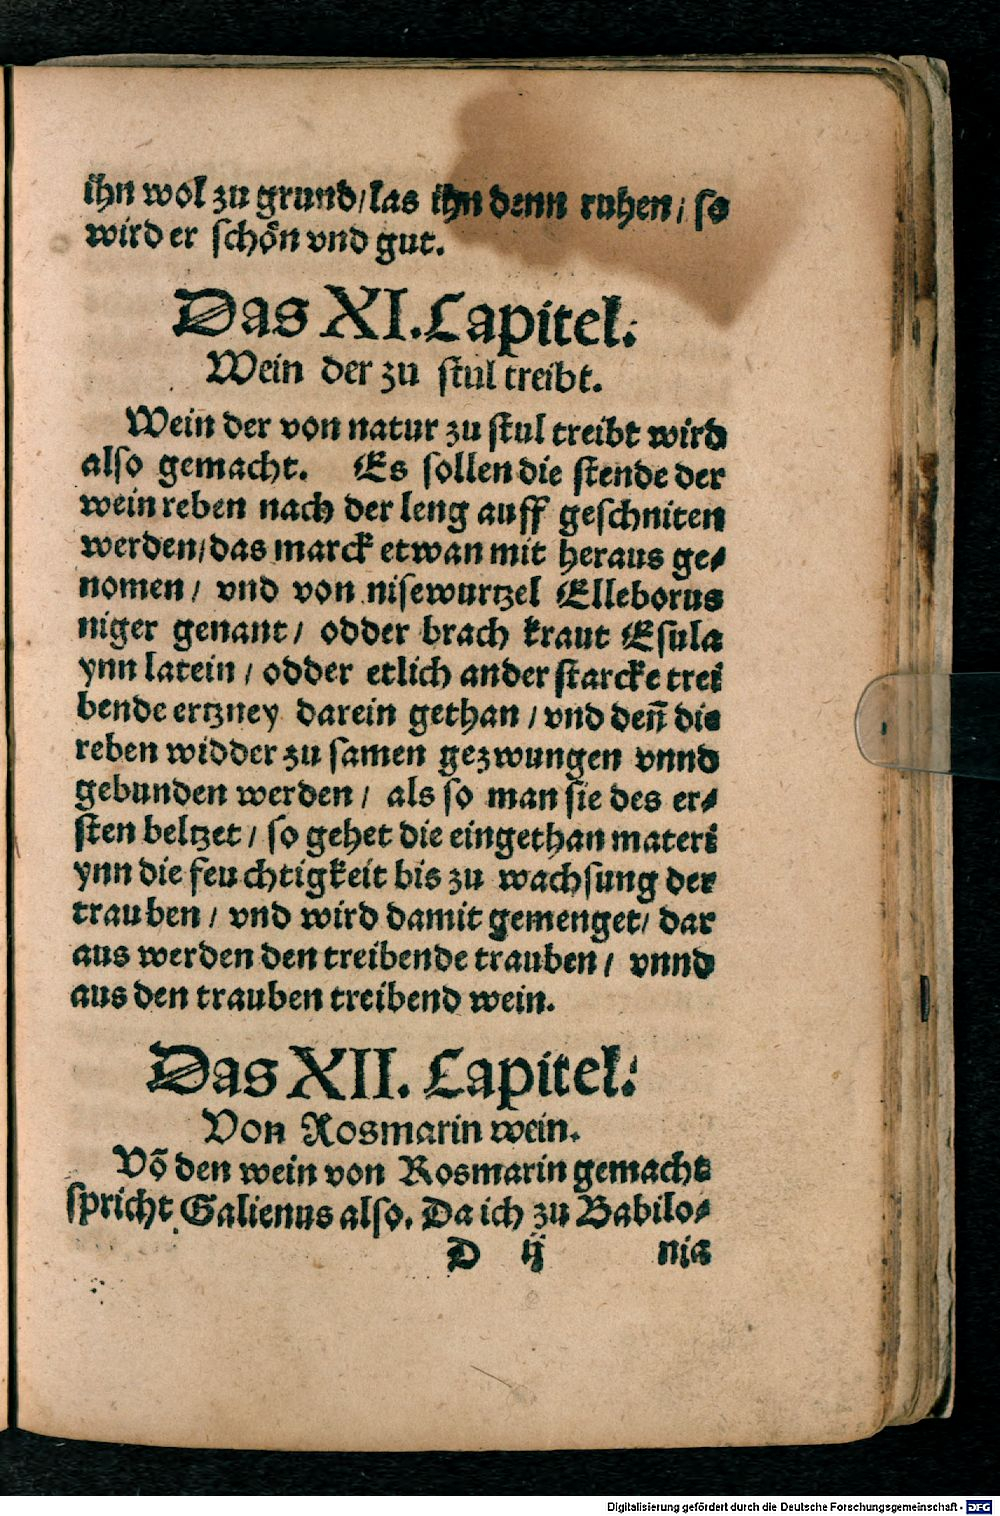 ihn wol zu grund/las ihn denn ruhen/ so
wird er schön vnd gut.
Das XI. Capitel.
Wein der zu stul treibt.
Wein der von natur zu stul treibt wird
also gemacht. Es sollen die stende der
wein reben nach der leng auff geschniten
werden/das marck etwan mit heraus ge⸗
nomen/ vnd von nisewurtzel Elleborus
niger genant/ odder brach kraut Esula
ynn latein/ odder etlich ander starcke trei
bende ertzney darein gethan/ vnd deñ die
reben widder zu samen gezwungen vnnd
gebunden werden/ als so man sie des er⸗
sten beltzet/ so gehet die eingethan materi
ynn die feuchtigkeit bis zu wachsung der
trauben/ vnd wird damit gemenget/ dar
aus werden den treibende trauben/ vnnd
aus den trauben treibend wein.
Das XII. Capitel.
Von Rosmarin wein.
Võ den wein von Rosmarin gemacht
spricht Galienus also. Da ich zu Babilo⸗
D ij nia
Digitalisierung gefördert durch die Deutsche Forschungsgemeinschaft - DFG